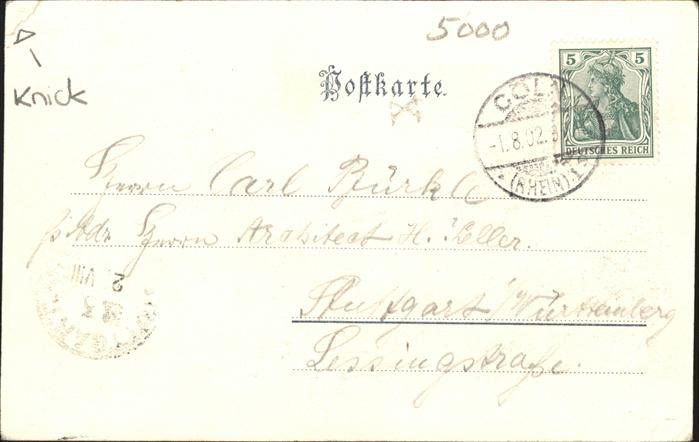 5000
Knick
Postkarte.
5 5
DEUTSCHES REICH
CÖLN
-1.8.02.
* (RHEIN) 1
Herrn Carl Bürkle
p. Adr. Herrn Architect H. Zeller.
Stuttgart / Württemberg
Lessingstraße.
2 VIII